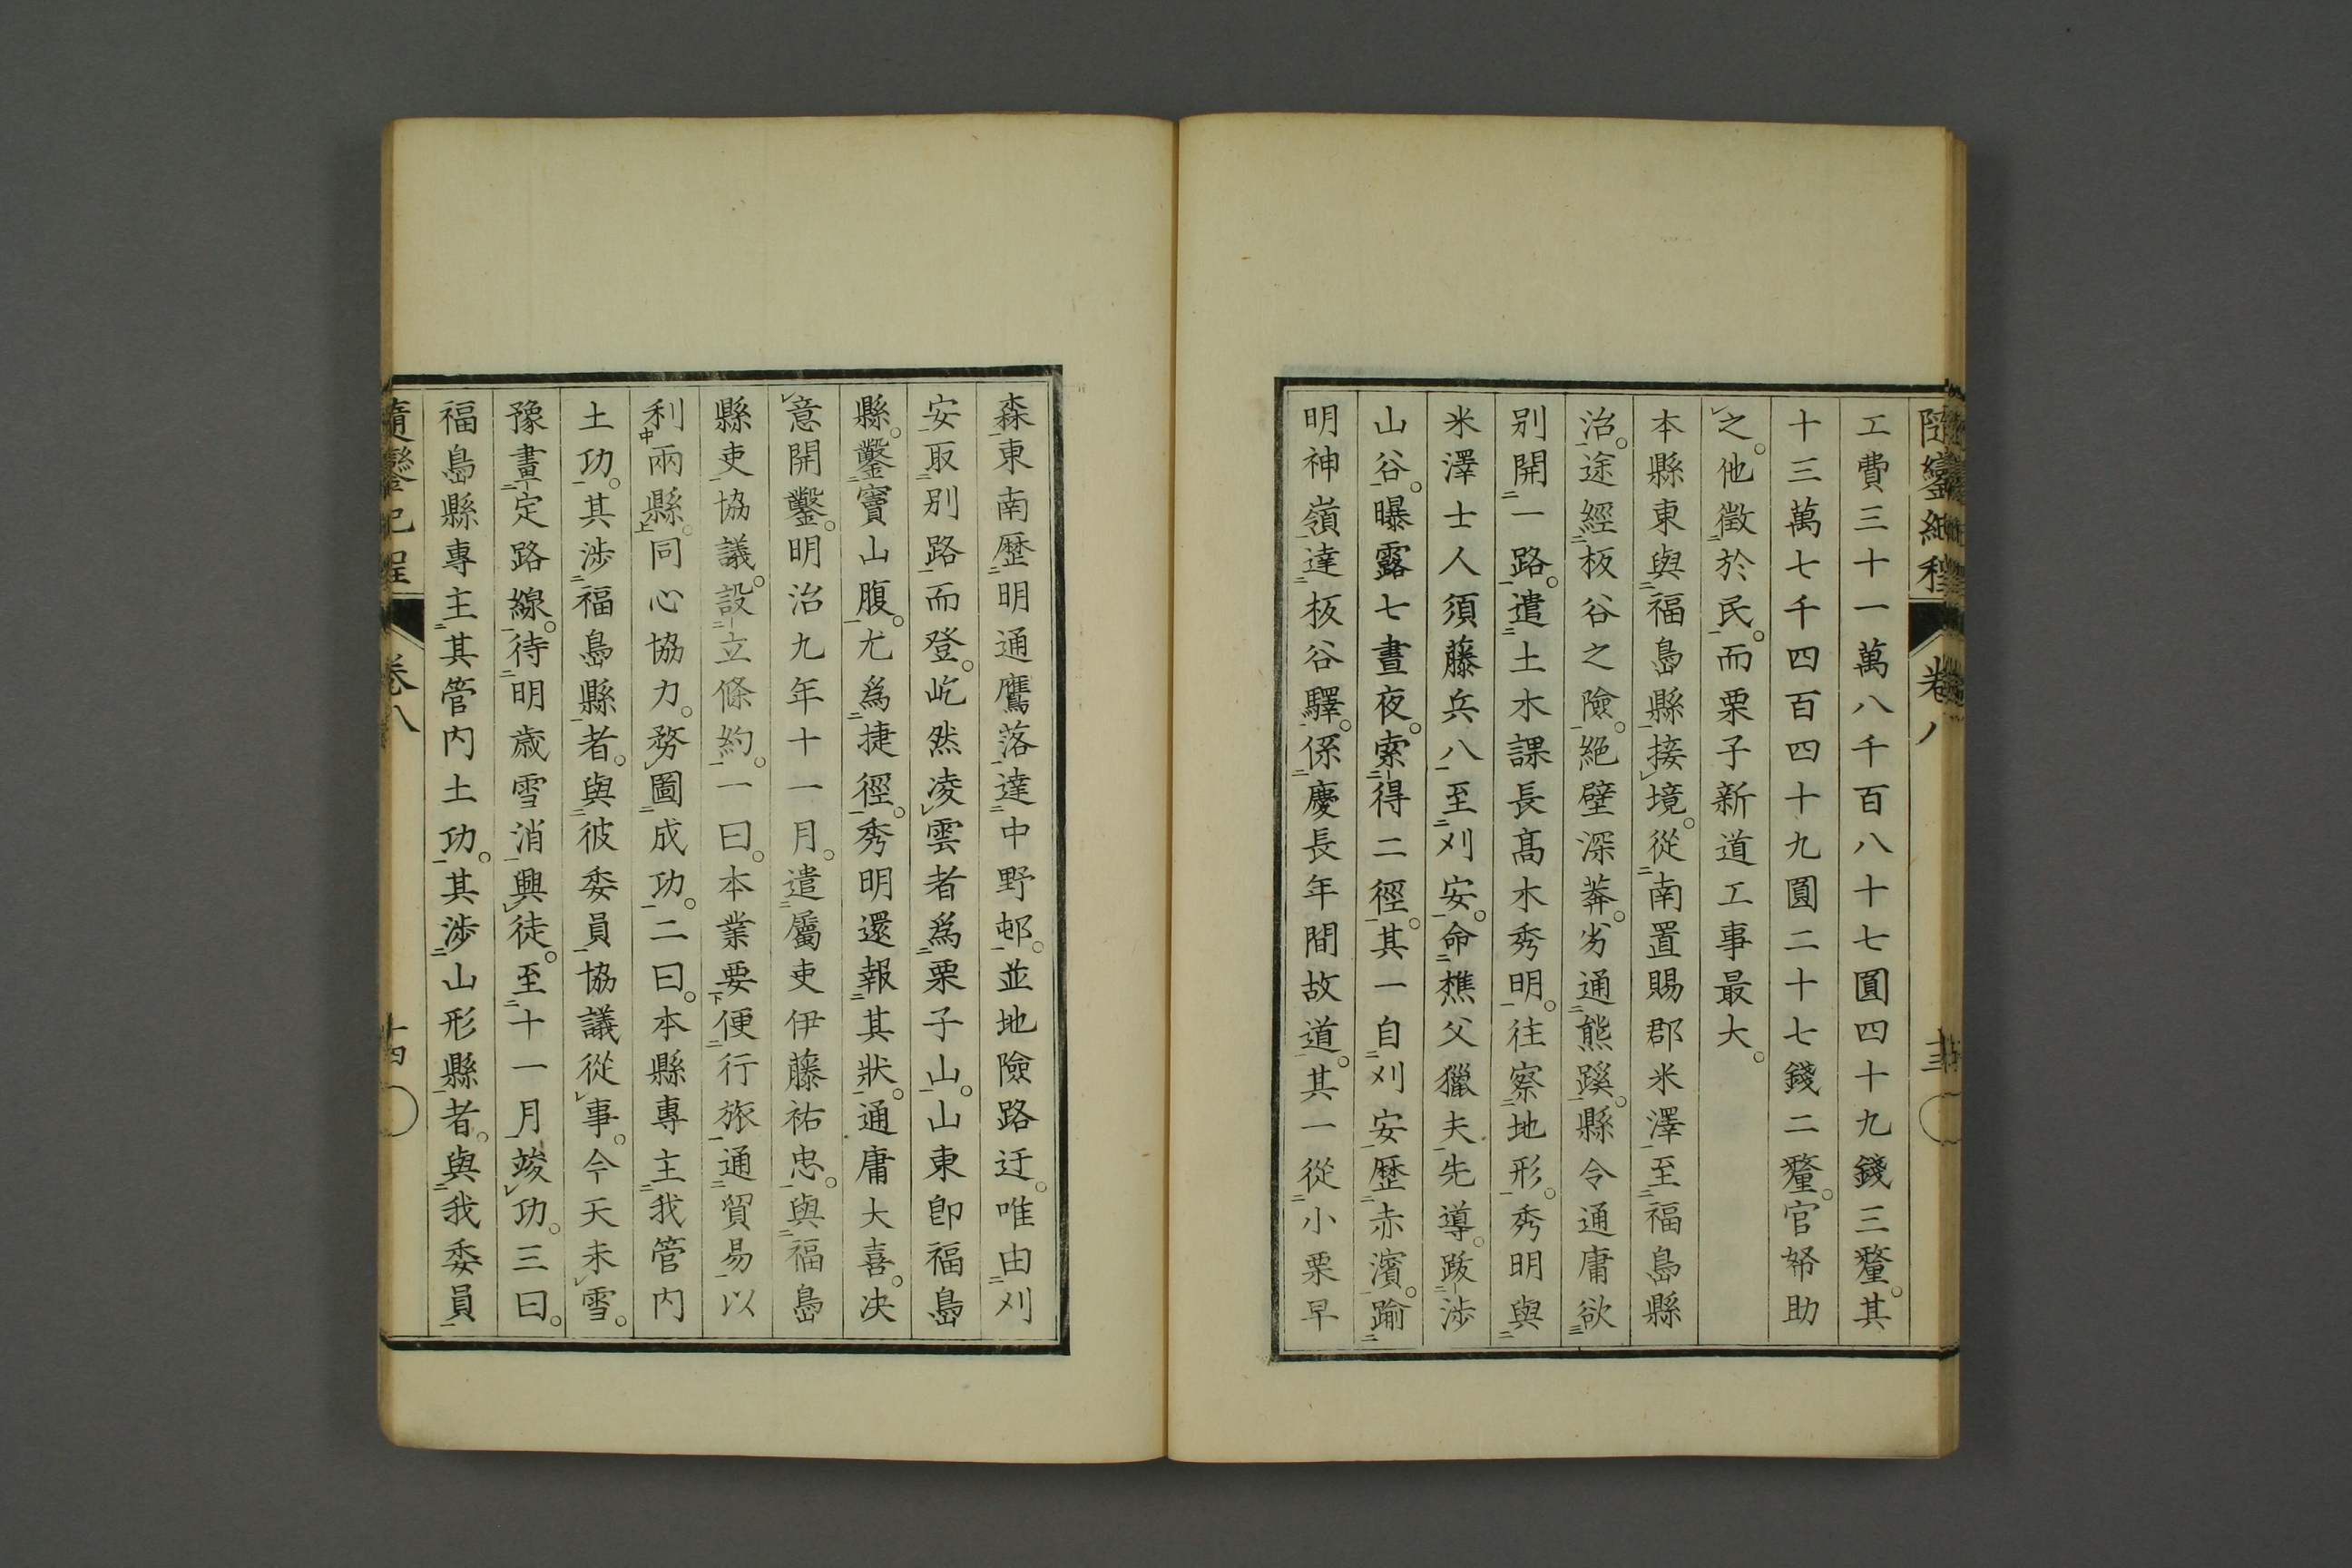 隨鑾紀程 卷八 十三
工費三十一萬八千百八十七圓四十九錢三釐。其
十三萬七千四百四十九圓二十七錢二釐。官帑助
之。他徵於民。而栗子新道工事最大。
本縣東與福島縣接境。從南置賜郡米澤至福島縣
治。途經板谷之險。絕壁深莽。劣通熊蹊。縣令通庸欲
別開一路。遣土木課長髙木秀明。往察地形。秀明與
米澤士人須藤兵八至刈安。命樵父獵夫先導。跋涉
山谷。曝露七晝夜。索得二徑。其一自刈安歷赤濱。踰
明神嶺達板谷驛。係慶長年間故道。其一從小栗早
森東南歷明通鷹落達中野邨。並地險路迂。唯由刈
安取別路而登。屹然凌雲者為栗子山。山東卽福島
縣。鑿竇山腹。尤為捷徑。秀明還報其狀。通庸大喜。决
意開鑿。明治九年十一月。遣屬吏伊藤祐忠。與福島
縣吏協議。設立條約。一曰。本業要便行旅通貿易以
利兩縣。同心協力。務圖成功。二曰。本縣專主我管内
土功。其涉福島縣者。與彼委員協議從事。今天未雪。
豫畫定路線。待明歲雪消興徒。至十一月竣功。三曰。
福島縣專主其管内土功。其涉山形縣者。與我委員
隨鑾紀程 卷八 十四